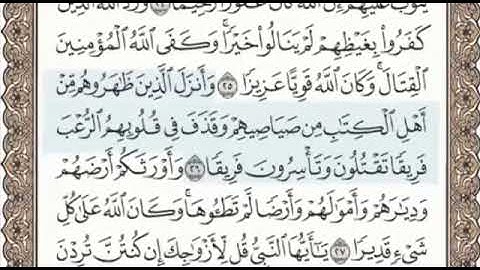 يَتُوبَ عَلَيْهِمْ إِنَّ ٱللَّهَ كَانَ غَفُورًا رَّحِيمًا ٢٤ وَرَدَّ ٱللَّهُ ٱلَّذِينَ
كَفَرُوا۟ بِغَيْظِهِمْ لَمْ يَنَالُوا۟ خَيْرًا ۚ وَكَفَى ٱللَّهُ ٱلْمُؤْمِنِينَ
ٱلْقِتَالَ ۚ وَكَانَ ٱللَّهُ قَوِيًّا عَزِيزًا ٢٥ وَأَنزَلَ ٱلَّذِينَ ظَٰهَرُوهُم مِّنْ
أَهْلِ ٱلْكِتَٰبِ مِن صَيَاصِيهِمْ وَقَذَفَ فِى قُلُوبِهِمُ ٱلرُّعْبَ
فَرِيقًا تَقْتُلُونَ وَتَأْسِرُونَ فَرِيقًا ٢٦ وَأَوْرَثَكُمْ أَرْضَهُمْ
وَدِيَٰرَهُمْ وَأَمْوَٰلَهُمْ وَأَرْضًا لَّمْ تَطَـُٔوهَا ۚ وَكَانَ ٱللَّهُ عَلَىٰ كُلِّ
شَىْءٍ قَدِيرًا ٢٧ يَٰٓأَيُّهَا ٱلنَّبِىُّ قُل لِّأَزْوَٰجِكَ إِن كُنتُنَّ تُرِدْنَ